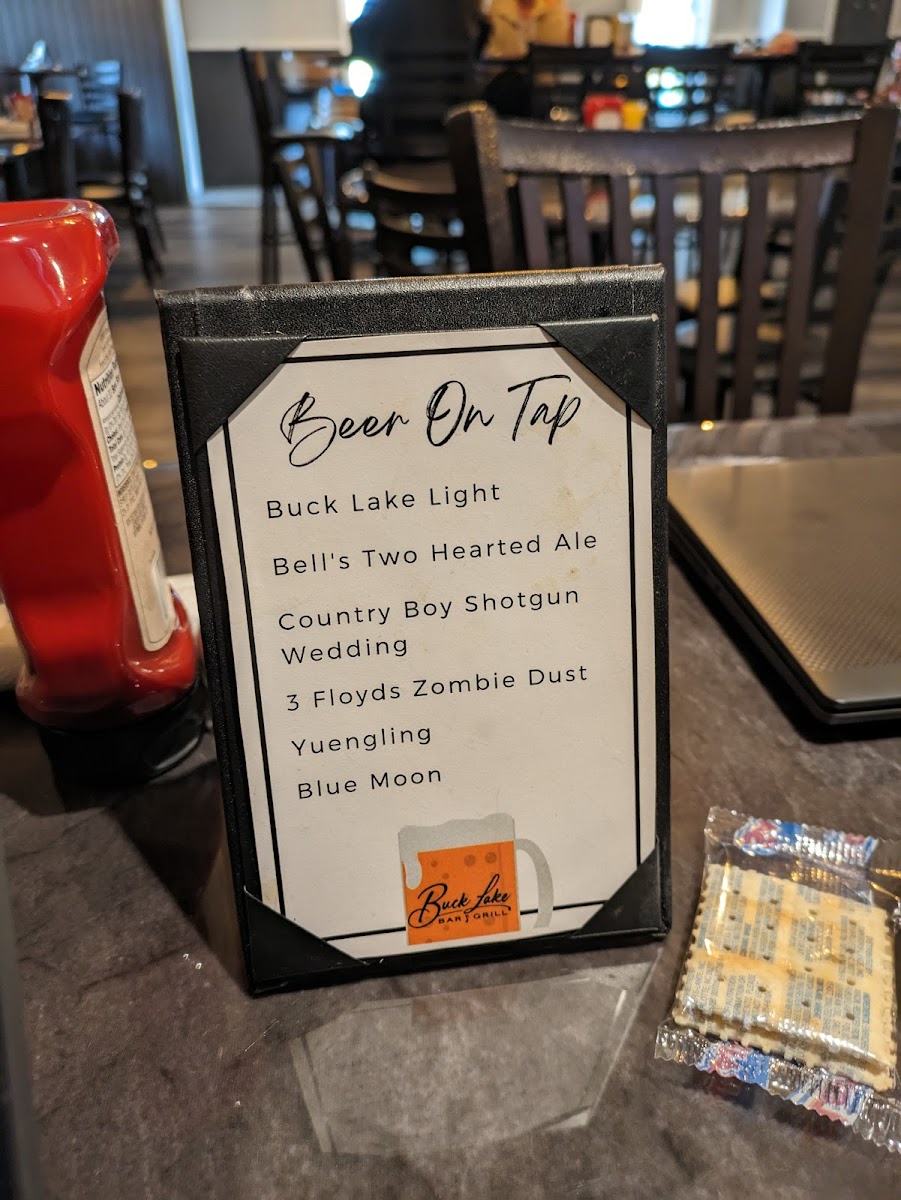 Beer On Tap
Buck Lake Light
Bell's Two Hearted Ale
Country Boy Shotgun
Wedding
3 Floyds Zombie Dust
Yuengling
Blue Moon
Buck Lake
BAR & GRILL